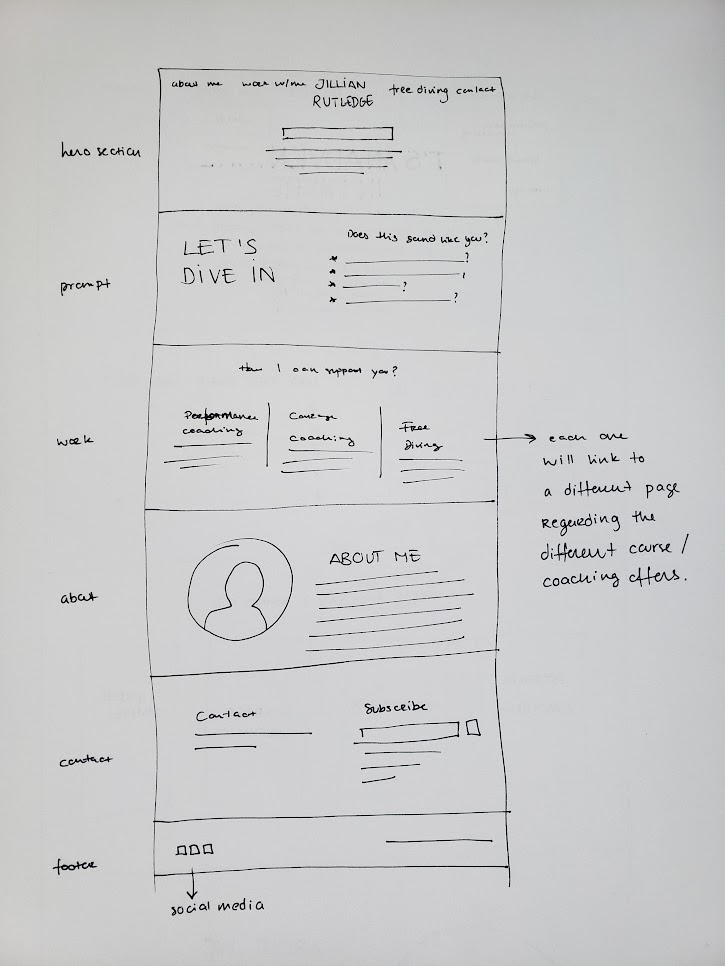 about me work w/me JILLIAN free diving contact
RUTLEDGE
hero section
LET'S
DIVE IN
Does this sound like you?
* ?
*
* ?
* ?
prompt
How I can support you?
work
Performance
coaching
Courage
Coaching
Free
Diving
each one
will link to
a different page
Regarding the
different course /
coaching offers.
ABOUT ME
about
Contact
Subscribe
contact
footer
social media